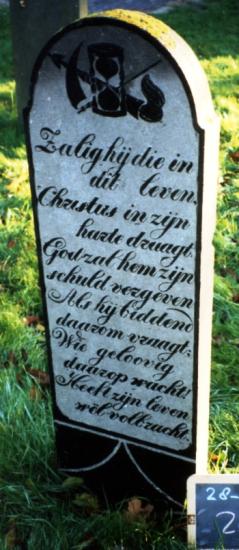 Zalig hij die in
dit leven,
Christus in zijn
harte draagt.
God zal hem zijn
schuld vergeven
Als hij biddend
daarom vraagt;
Wie geloovig
daarop wacht!
Heeft zijn leven
wèl volbracht.
28-
2